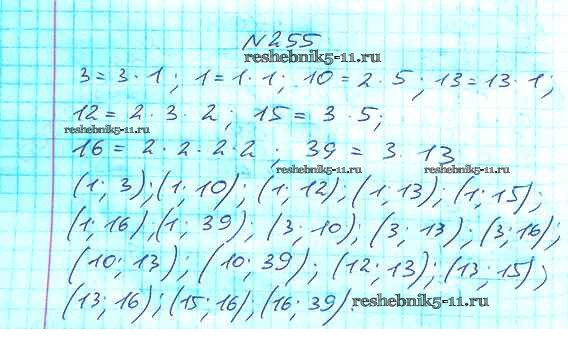 N255
reshebnik5-11.ru
3 = 3 · 1; 1 = 1 · 1; 10 = 2 · 5; 13 = 13 · 1;
12 = 2 · 3 · 2; 15 = 3 · 5;
reshebnik5-11.ru
16 = 2 · 2 · 2 · 2; 39 = 3 · 13
reshebnik5-11.ru reshebnik5-11.ru
(1; 3); (1; 10); (1; 12); (1; 13); (1; 15);
(1; 16); (1; 39); (3; 10); (3; 13); (3; 16);
(10; 13); (10; 39); (12; 13); (13; 15);
(13; 16); (15; 16); (16; 39).
reshebnik5-11.ru